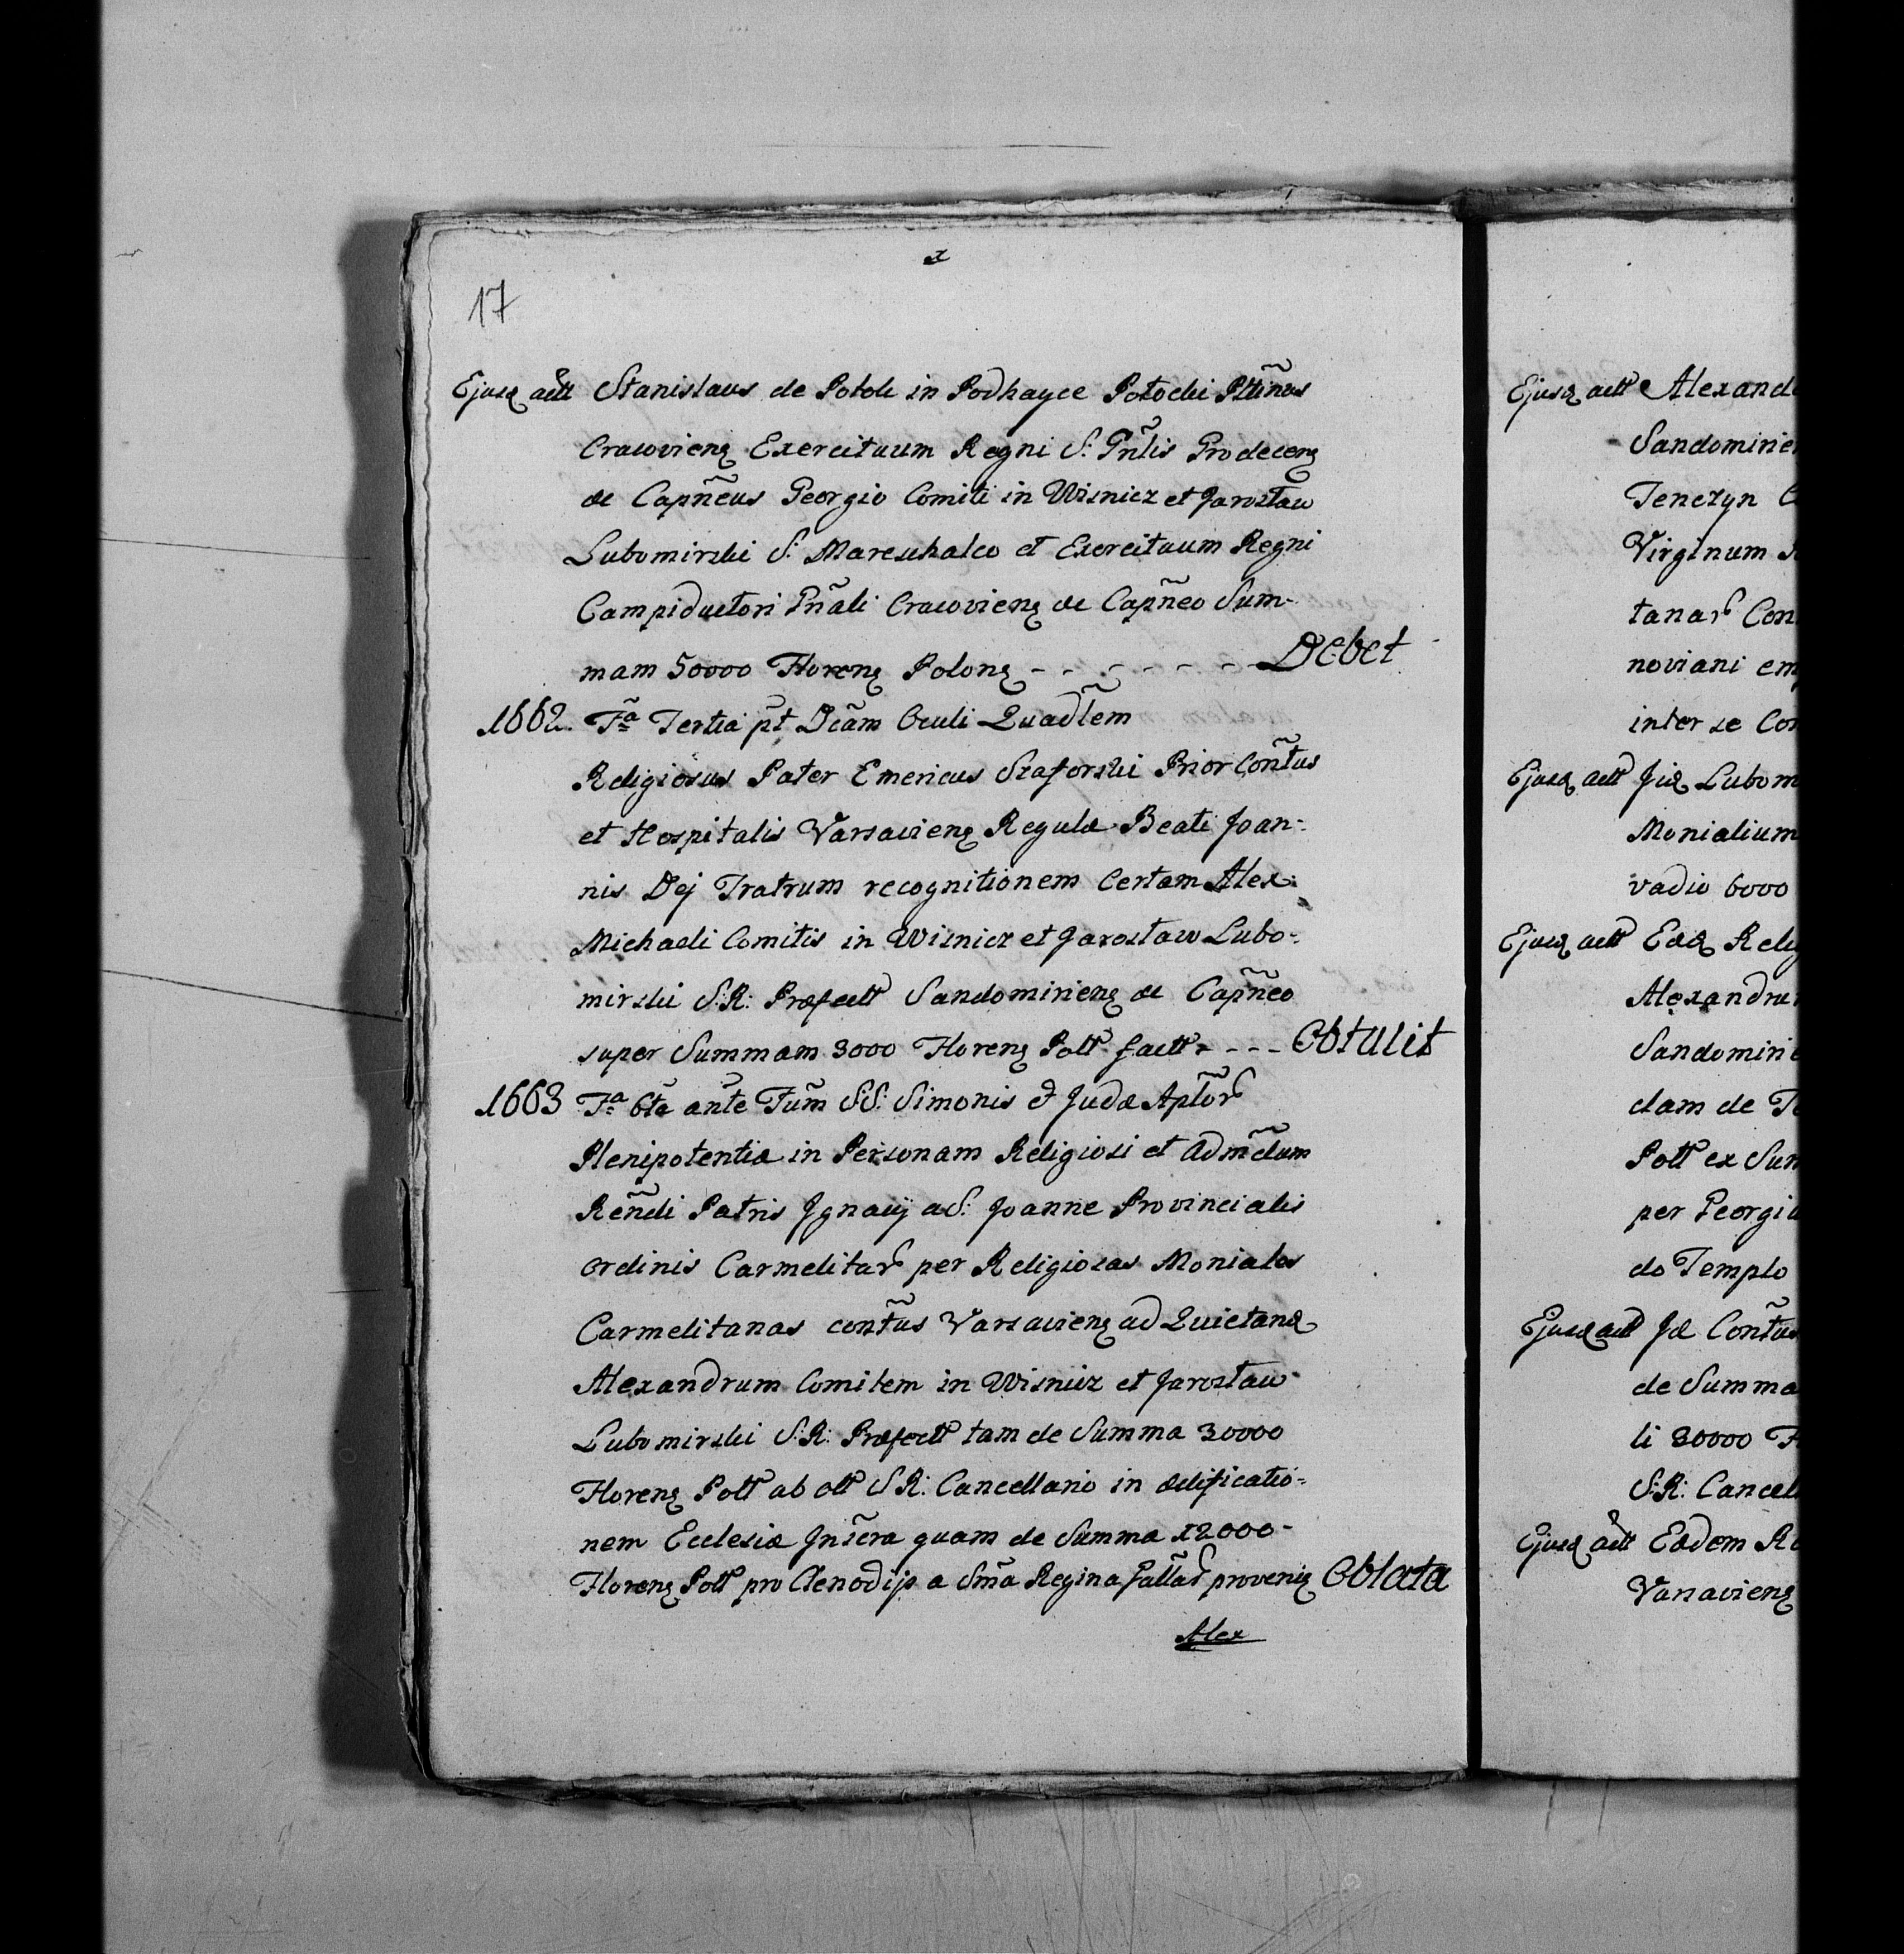 x
17
Ejusq actt Stanislaus de Potok in Podhayce Potocki Pttinus
Cracovienq Exercituum Regni S: Pnlis Prodecenq
&c Capñeus Georgio Comiti in Wisnicz et Jarosław
Lubomirski S: Mareschalco et Exercituum Regni
Campiductori Pñali Cracovienq &c Capñeo Sum-
mam 50000 Florenq Polonq - - - - - - - Debet
1662. Fa Tertia pt Dcam Oculi Quadlem
Religiosus Pater Emericus Szaforski Prior Contus
et Hospitalis Varsavienq Regulæ Beati Joan-
nis Dej Fratrum recognitionem Certam Alex:
Michaeli Comitis in Wisnicz et Jarosław Lubo-
mirski S:R: Præfectt Sandomirienq &c Capñeo
super Summam 3000 Florenq Poltt factt - - - Obtulit
1663 Fa 6ta ante Fum S.S. Simonis & Judæ Aplor
Plenipotentia in Personam Religiosi et Admdum
Rendi Patris Jgnacij a S: Joanne Provincialis
Ordinis Carmelitar per Religiosas Moniales
Carmelitanas contus Varsavienq ad Quietanq
Alexandrum Comitem in Wisnicz et Jarosław
Lubomirski S:R: Præfectt tam de Summa 30000
Florenq Poltt ab oltt S R: Cancellario in ædificatio-
nem Ecclesiæ Jnscra quam de Summa 12000-
Florenq Poltt pro Clenodijs a Sma Regina fattar proveniq Oblata
Alex
Ejusq actt Alexand
Sandomirie
Tenczyn C
Virginum
tanar Con
noviani em
inter se Con
Ejusq actt Jidq Lubom
Monialium
vadio 6000
Ejusq actt Eædq Relig
Alexandru
Sandomiri
dam de T
Poltt ex Sum
per Georgiu
do Templo
Ejusq actt Jd Contus
de Summa
li 30000 F
S:R: Cancel
Ejusq actt Eædem R
Varsavienq